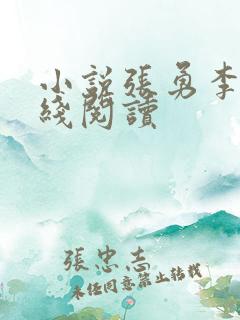 小說張勇李
綫閱讀
張忠志
未经同意禁止转载